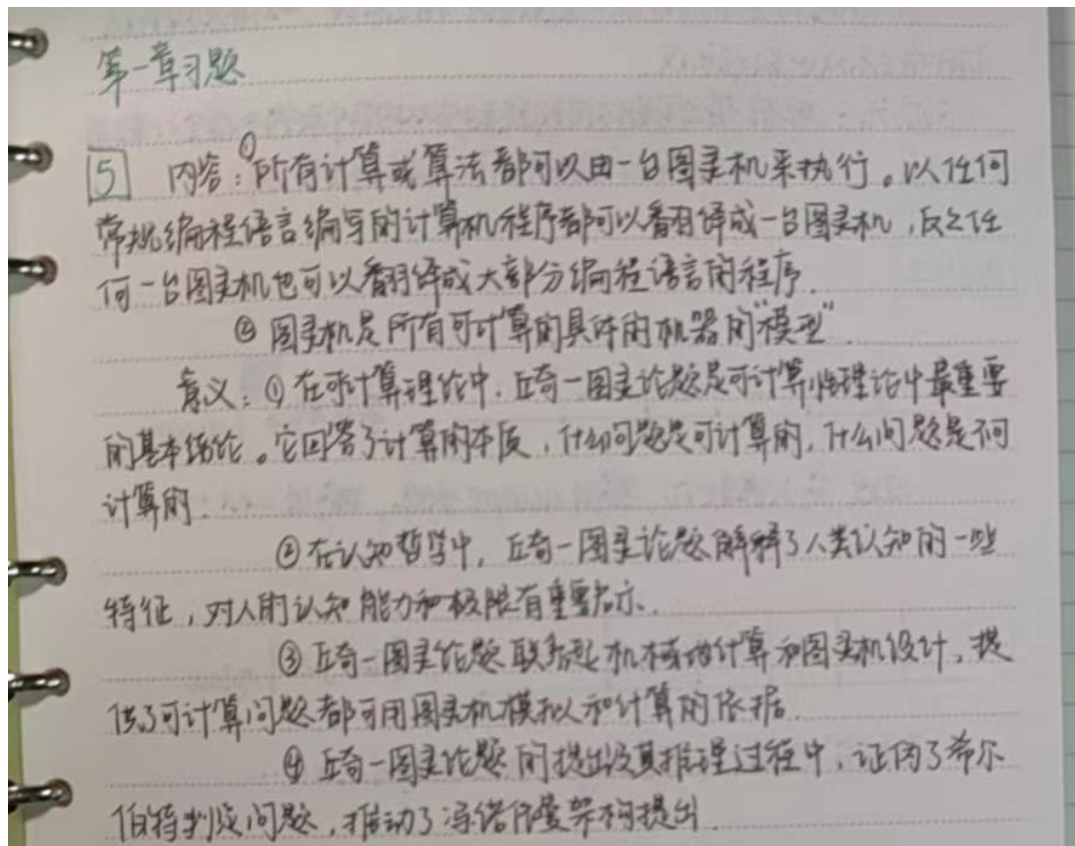 第一章习题
5 内容：①所有计算或算法都可以由一台图灵机来执行。以任何
常规编程语言编写的计算机程序都可以翻译成一台图灵机，反之任
何一台图灵机也可以翻译成大部分编程语言的程序.
② 图灵机是所有可计算的具体的机器的"模型".
意义：① 在可计算理论中，丘奇一图灵论题是可计算性理论中最重要
的基本结论。它回答了计算的本质，什么问题是可计算的，什么问题是不可
计算的.
② 在认知哲学中，丘奇一图灵论题解释了人类认知的一些
特征，对人的认知能力和极限有重要启示.
③ 丘奇一图灵论题联系起机械的计算和图灵机设计，提
供了可计算问题都可用图灵机模拟和计算的依据.
④ 丘奇一图灵论题的提出及其推理过程中，证伪了希尔
伯特判定问题，推动了冯诺依曼架构提出.